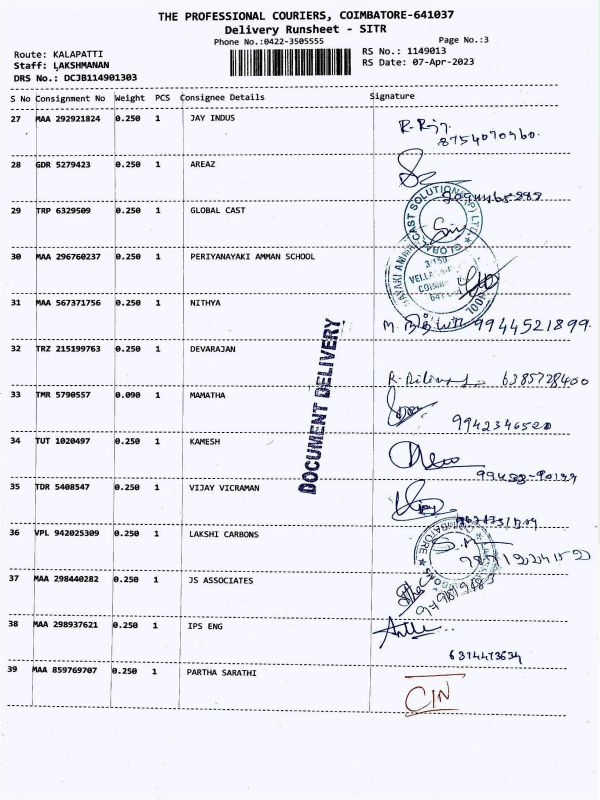 THE PROFESSIONAL COURIERS, COIMBATORE-641037
Delivery Runsheet - SITR
Phone No.:0422-3505555
Page No.:3
Route: KALAPATTI
RS No.: 1149013
Staff: LAKSHMANAN
RS Date: 07-Apr-2023
DRS No.: DCJB114901303
S No Consignment No Weight PCS Consignee Details Signature
27 MAA 292921824 0.250 1 JAY INDUS
8754070960.
28 GDR 5279423 0.250 1 AREAZ
29 TRP 6329509 0.250 1 GLOBAL CAST
CAST SOLUTION (P) LTD. ★ GLOBAL
30 MAA 296760237 0.250 1 PERIYANAYAKI AMMAN SCHOOL
31 MAA 567371756 0.250 1 NITHYA
9944521899.
32 TRZ 215199763 0.250 1 DEVARAJAN
6385728400
33 TMR 5790557 0.090 1 MAMATHA
9942346520
34 TUT 1020497 0.250 1 KAMESH
35 TDR 5408547 0.250 1 VIJAY VICRAMAN
36 VPL 942025309 0.250 1 LAKSHI CARBONS
COIMBATORE
37 MAA 298440282 0.250 1 JS ASSOCIATES
38 MAA 298937621 0.250 1 IPS ENG
6374473634
39 MAA 859769707 0.250 1 PARTHA SARATHI
CIN
DOCUMENT DELIVERY